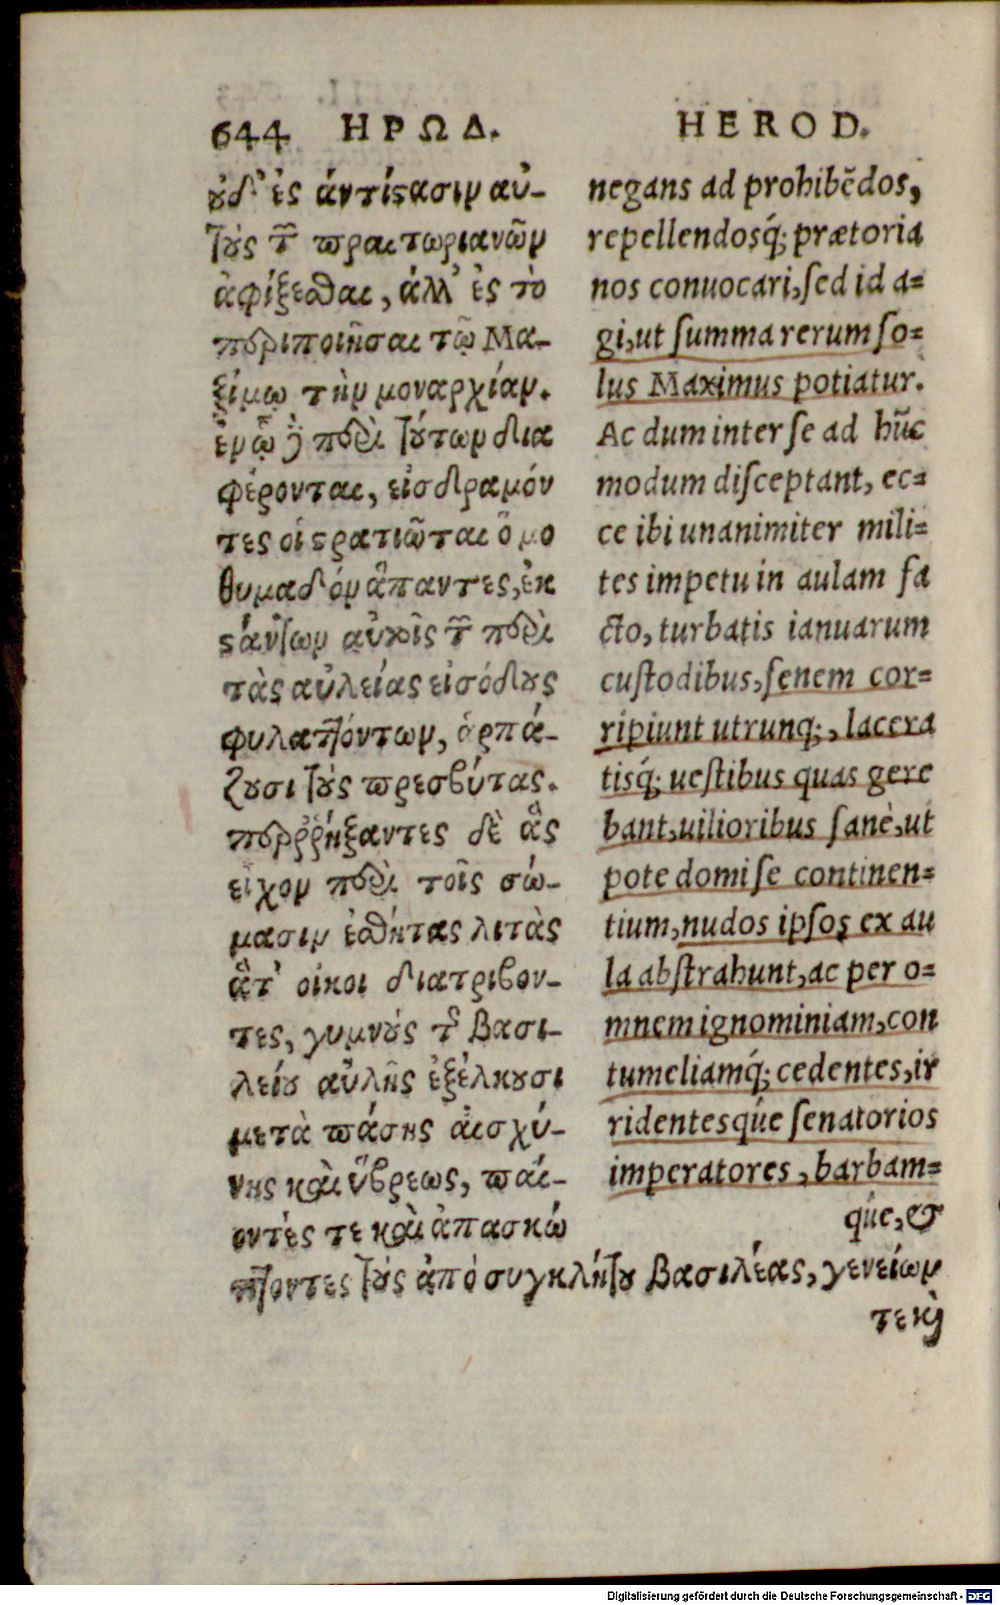 644 ΗΡΩΔ.
ȣδ' ἐς ἀντίϛασιν αὐ-
τȣ́ς τ̃ ϖραιτωριανῶν
ἀφίξεσθαι, ἀλλ' ἐς τὸ
περιποιῆσαι τῷ Μα-
ξίμῳ τὴν μοναρχίαν.
ἐν ᾧ ἢ περὶ τȣ́των δια
φέρονται, εἰσδραμόν
τες οἱ ϛρατιῶται ὁμο
θυμαδὸν ἅπαντες, ἐκ
ϛάντων αὐτοῖς τ̃ περὶ
τὰς αὐλείας εἰσόδȣς
φυλαττόντων, ἁρπά-
ζȣσι τȣ̀ς ϖρεσβύτας.
περῤῥήξαντες δὲ ἃς
εἶχον περὶ τοῖς σώ-
μασιν ἐσθῆτας λιτὰς
ἅτ' οἴκοι διατρίβον-
τες, γυμνȣ̀ς τ̃ βασι-
λείȣ αὐλῆς ἐξέλκȣσι
μετὰ ϖάσης αἰσχύ-
νης καὶ ὕβρεως, ϖαί-
οντές τε καὶ ἀπασκώ
πτοντες τȣ̀ς ἀπὸ συγκλήτȣ βασιλέας, γενείων
τε κὶ
HEROD.
negans ad prohibēdos,
repellendosq́; prætoria
nos conuocari, ſed id a=
gi, ut ſumma rerum ſo=
lus Maximus potiatur.
Ac dum inter ſe ad hūc
modum diſceptant, ec=
ce ibi unanimiter mili=
tes impetu in aulam fa
cto, turbatis ianuarum
cuſtodibus, ſenem cor=
ripiunt utrunq;, lacera
tisq́; ueſtibus quas gere
bant, uilioribus ſanè, ut
pote domi ſe continen=
tium, nudos ipſos ex au
la abſtrahunt, ac per o=
mnem ignominiam, con
tumeliamq́; cedentes, ir
ridentesq́ue ſenatorios
imperatores, barbam=
q́ue, &
Digitalisierung gefördert durch die Deutsche Forschungsgemeinschaft - DFG